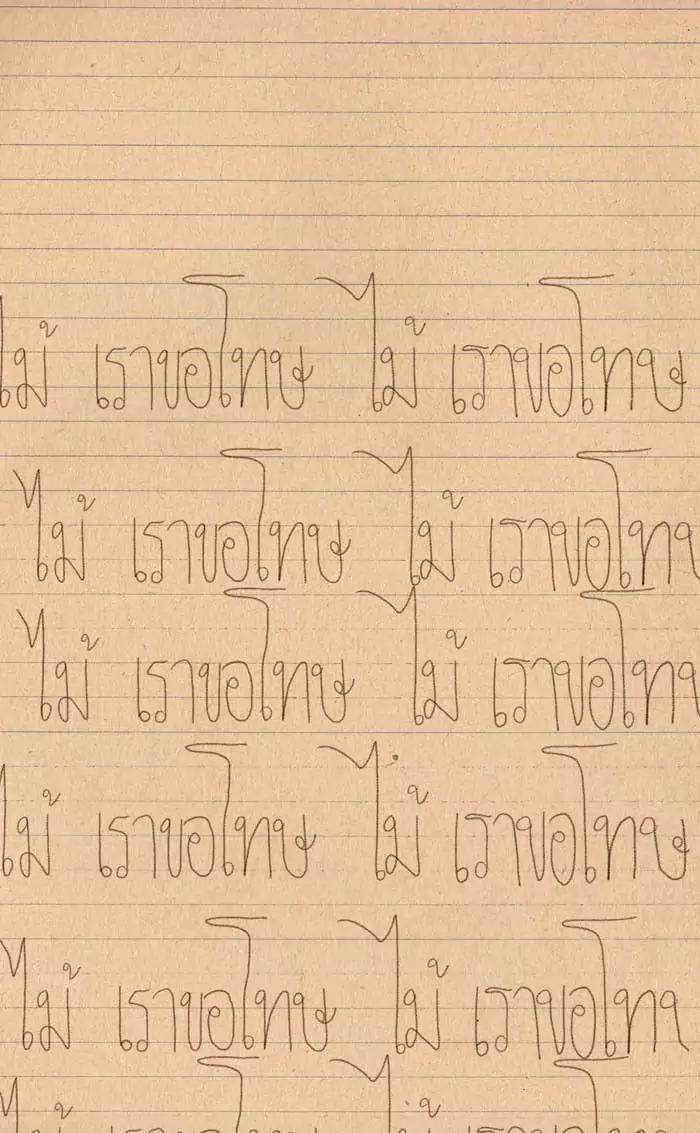 ไม้ เราขอโทษ ไม้ เราขอโทษ
ไม้ เราขอโทษ ไม้ เราขอโท
ไม้ เราขอโทษ ไม้ เราขอโท
ไม้ เราขอโทษ ไม้ เราขอโทษ
ไม้ เราขอโทษ ไม้ เราขอโท